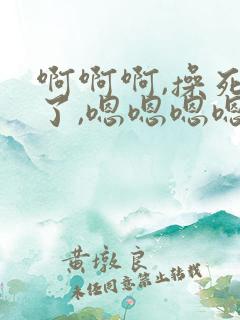 啊啊啊,操死
了,嗯嗯嗯嗯
黄墩良
未经同意禁止转载